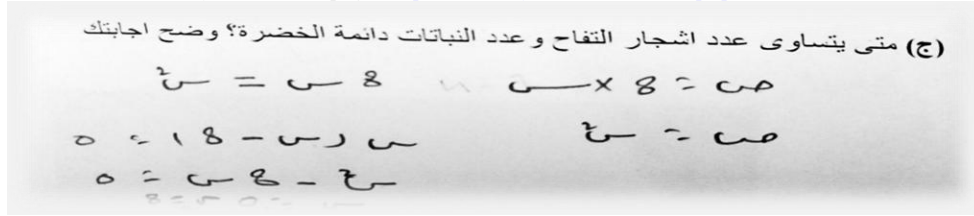 (ج) متى يتساوى عدد اشجار التفاح و عدد النباتات دائمة الخضرة؟ وضح اجابتك
ص = 8 × س
8 س = س²
ص = س²
س (س - 8) = 0
س² - 8 س = 0